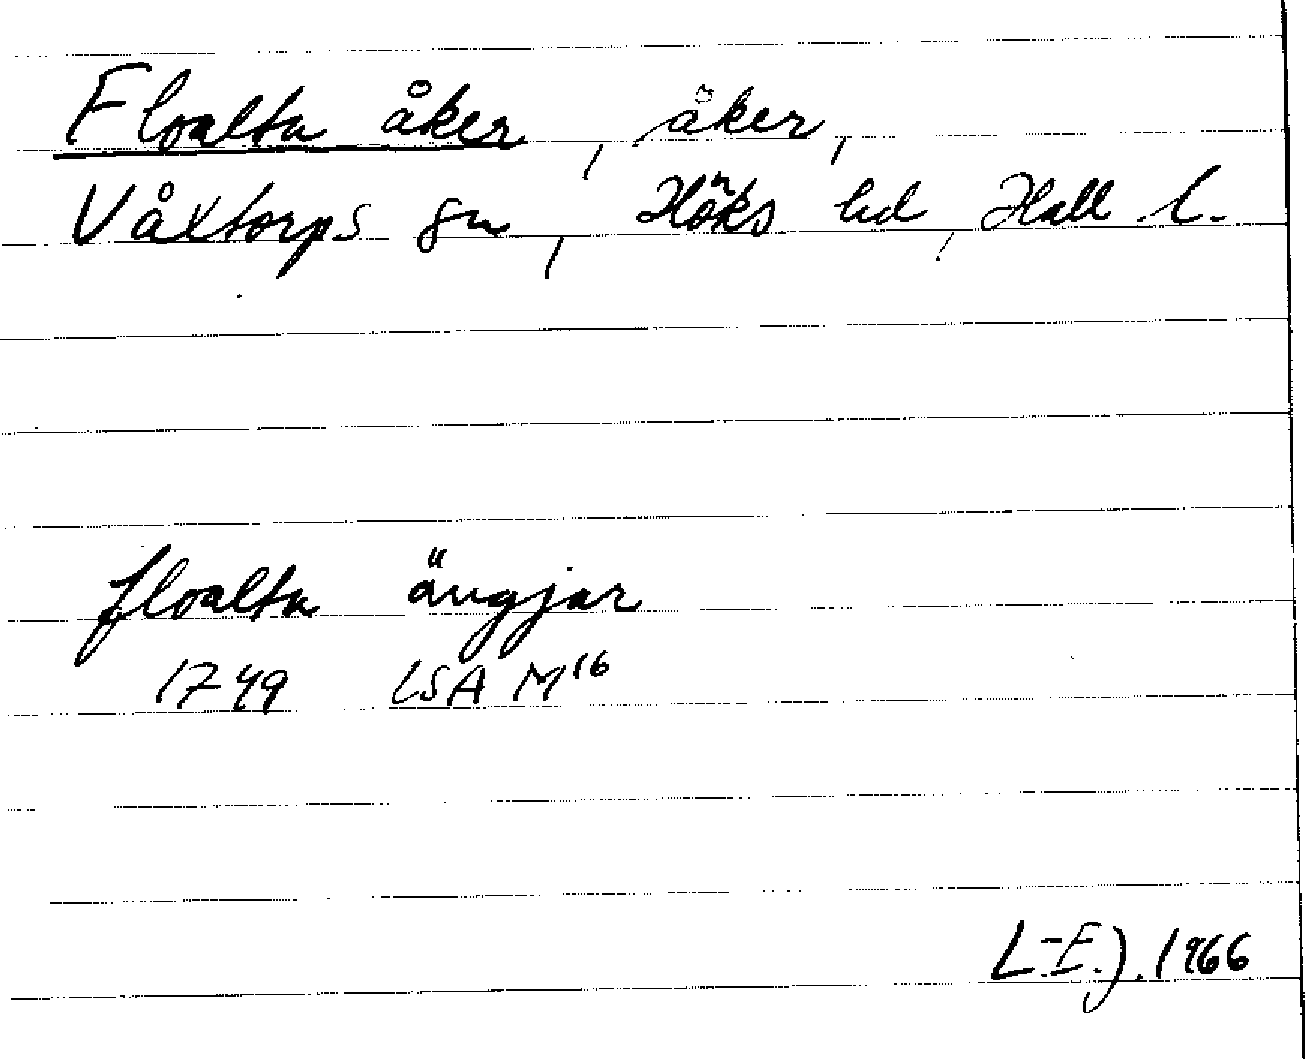 Floalta åker, åker,
Våxtorps sn, Höks hd, Hall l.
floalta ängjar
1749 LSA M16
L-E.J. 1966